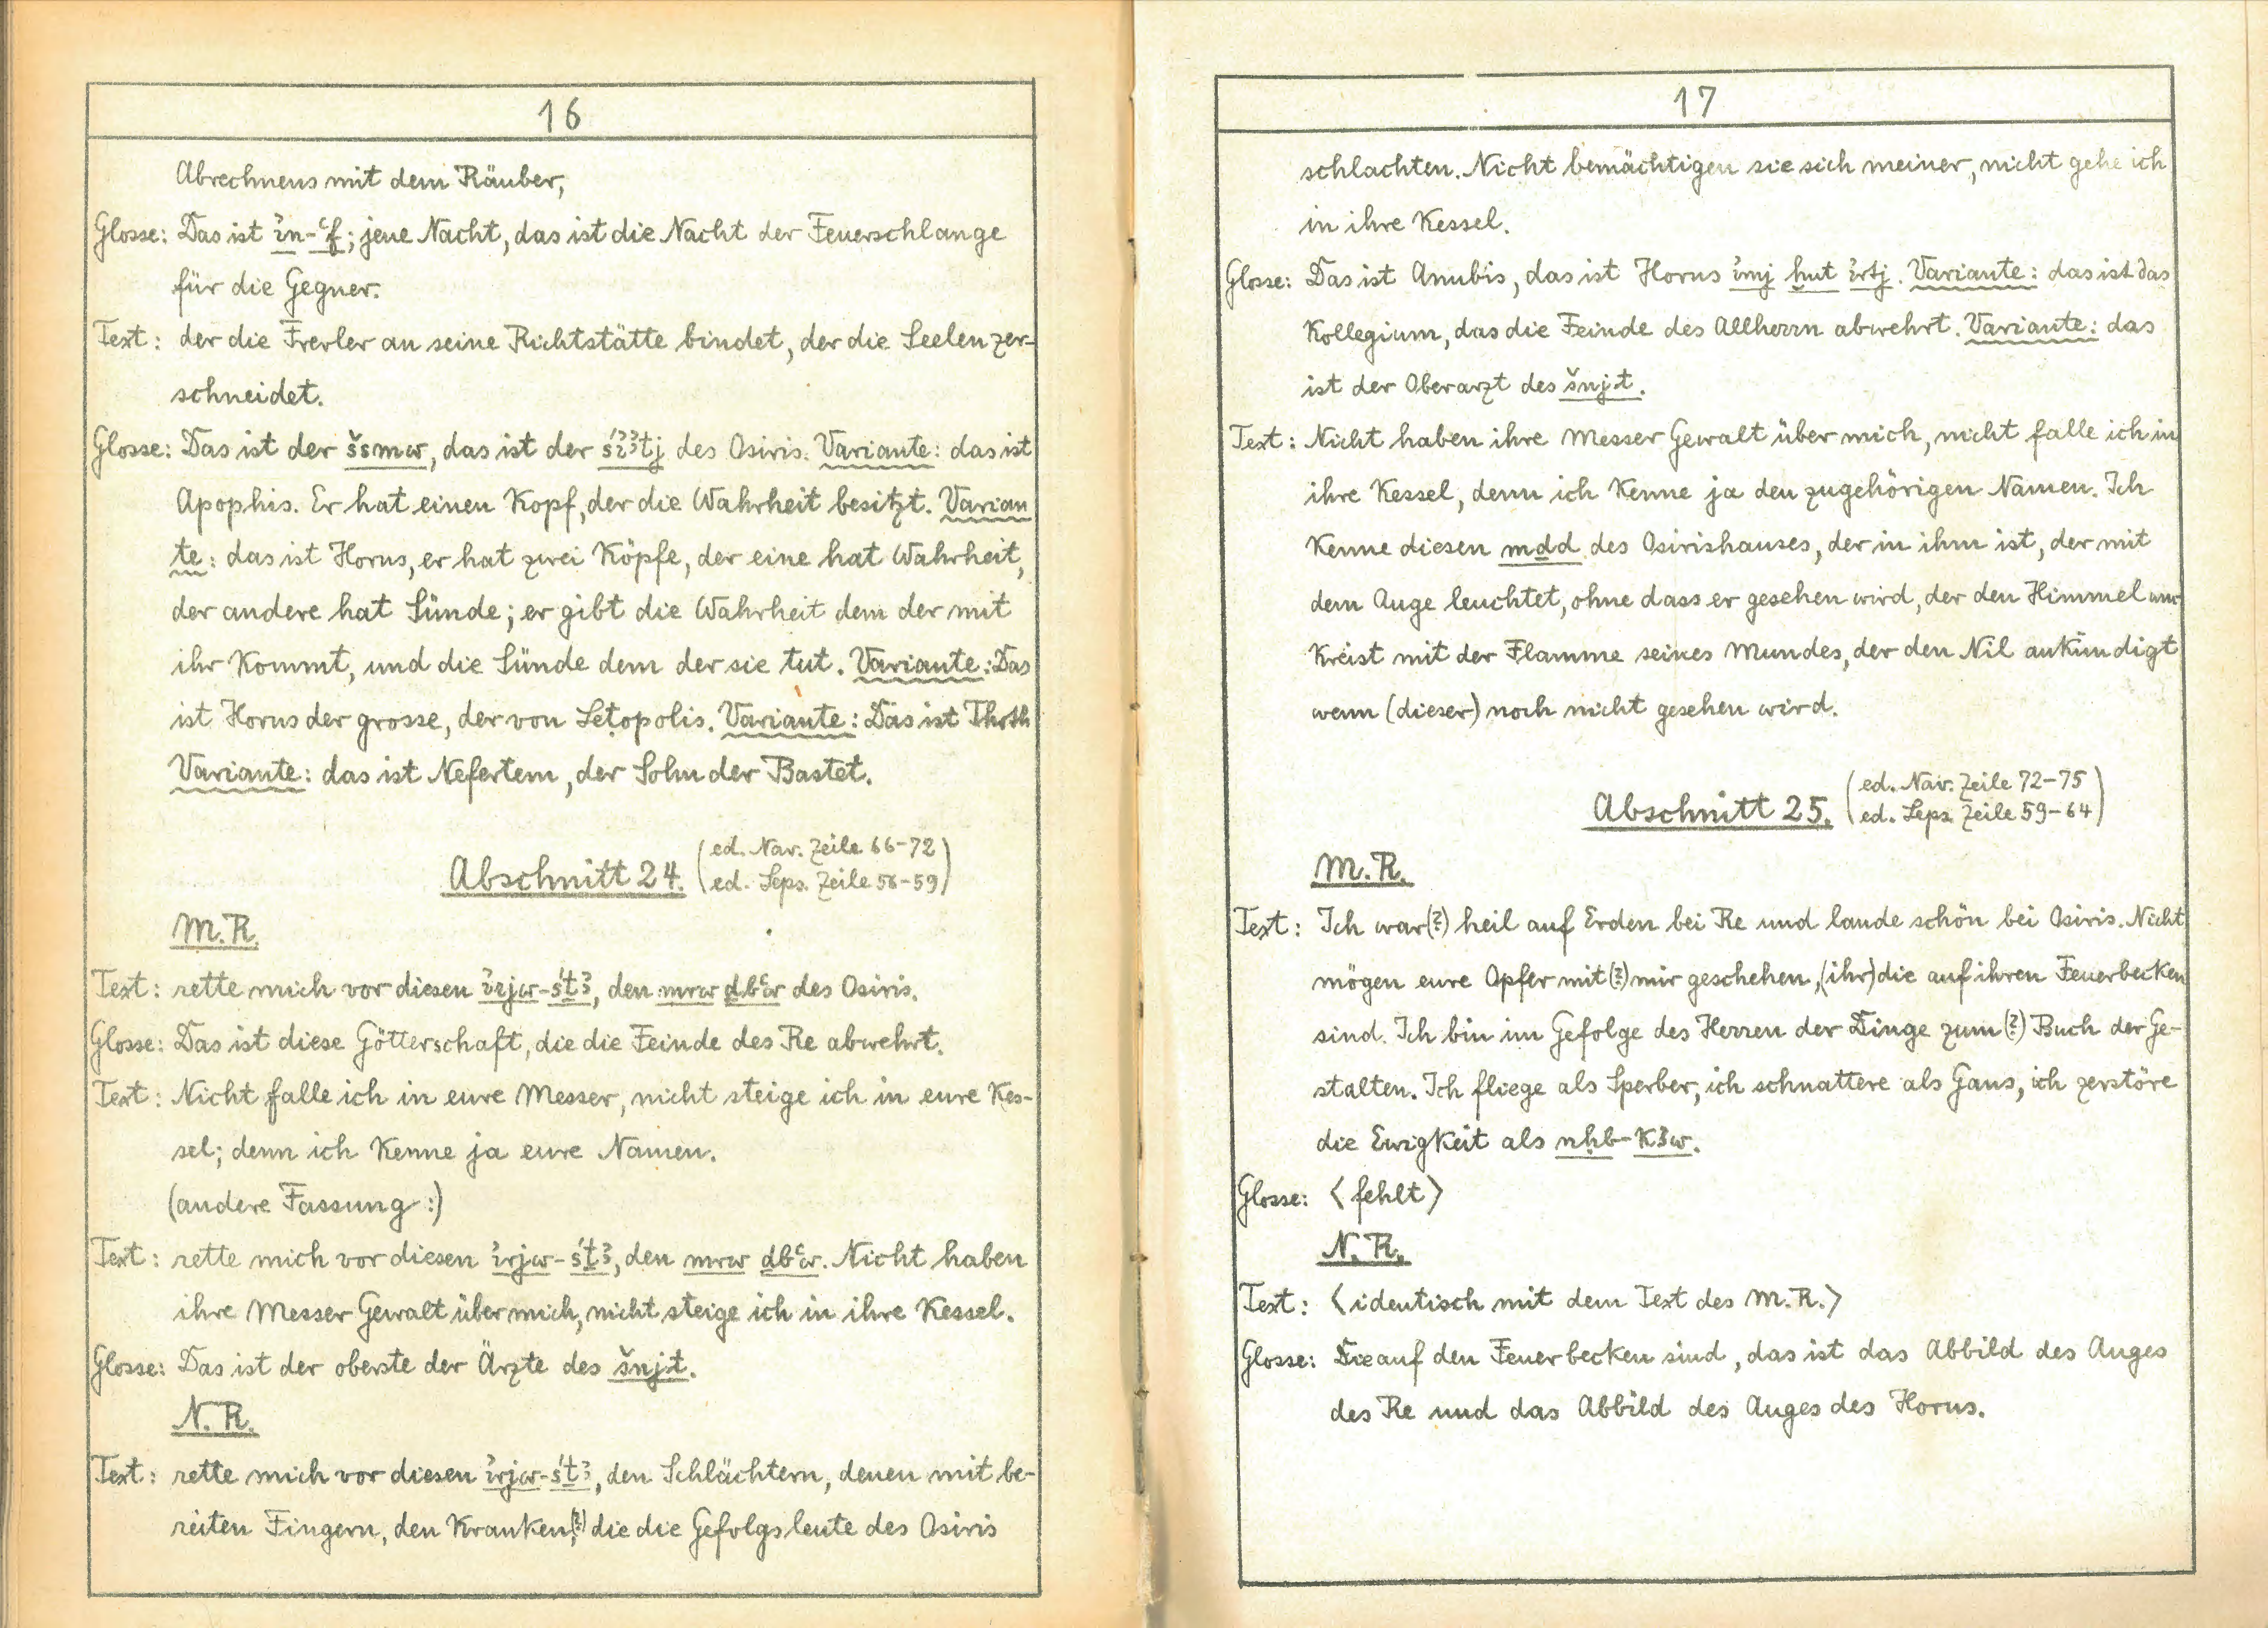 16
Abrechnens mit dem Räuber,
Glosse: Das ist ı͗n-ꜥf; jene Nacht, das ist die Nacht der Feuerschlange
für die Gegner.
Text: der die Frevler an seine Richtstätte bindet, der die Seelen zer-
schneidet.
Glosse: Das ist der šsmw, das ist der śı͗ꜣtj des Osiris. Variante: das ist
Apophis. Er hat einen Kopf, der die Wahrheit besitzt. Varian
te: das ist Horus, er hat zwei Köpfe, der eine hat Wahrheit,
der andere hat Sünde; er gibt die Wahrheit dem der mit
ihr kommt, und die Sünde dem der sie tut. Variante: Das
ist Horus der grosse, der von Letopolis. Variante: Das ist Thoth
Variante: das ist Nefertem, der Sohn der Bastet.
Abschnitt 24. (ed. Nav. Zeile 66-72
ed. Leps. Zeile 56-59)
M.R.
Text: rette mich vor diesen ı͗rjw-śṯꜣ, den mrw dbꜥw des Osiris.
Glosse: Das ist diese Götterschaft, die die Feinde des Re abwehrt.
Text: Nicht falle ich in eure Messer, nicht steige ich in eure Kes-
sel; denn ich kenne ja eure Namen.
(andere Fassung:)
Text: rette mich vor diesen ı͗rjw-śṯꜣ, den mrw ḏbꜥw. Nicht haben
ihre Messer Gewalt über mich, nicht steige ich in ihre Kessel.
Glosse: Das ist der oberste der Ärzte des šnj.t.
N.R.
Text: rette mich vor diesen ı͗rjw-śṯꜣ, den Schlächtern, denen mit be-
reiten Fingern, den Kranken(?), die die Gefolgsleute des Osiris
17
schlachten. Nicht bemächtigen sie sich meiner, nicht gehe ich
in ihre Kessel.
Glosse: Das ist Anubis, das ist Horus ı͗mj ḫnt ı͗rtj. Variante: das ist das
Kollegium, das die Feinde des Allherrn abwehrt. Variante: das
ist der Oberarzt des šnj.t.
Text: Nicht haben ihre Messer Gewalt über mich, nicht falle ich in
ihre Kessel, denn ich kenne ja den zugehörigen Namen. Ich
kenne diesen mḏd des Osirishauses, der in ihm ist, der mit
dem Auge leuchtet, ohne dass er gesehen wird, der den Himmel um
kreist mit der Flamme seines Mundes, der den Nil ankündigt
wenn (dieser) noch nicht gesehen wird.
Abschnitt 25. (ed. Nav. Zeile 72-75
ed. Leps. Zeile 59-64)
M.R.
Text: Ich war(?) heil auf Erden bei Re und lande schön bei Osiris. Nicht
mögen eure Opfer mit(?) mir geschehen, (ihr) die auf ihren Feuerbecken
sind. Ich bin im Gefolge des Herren der Dinge zum(?) Buch der Ge-
stalten. Ich fliege als Sperber, ich schnattere als Gans, ich zerstöre
die Ewigkeit als nḥb-kꜣw.
Glosse: ⟨fehlt⟩
N.R.
Text: ⟨identisch mit dem Text des M.R.⟩
Glosse: Die auf den Feuerbecken sind, das ist das Abbild des Auges
des Re und das Abbild des Auges des Horus.